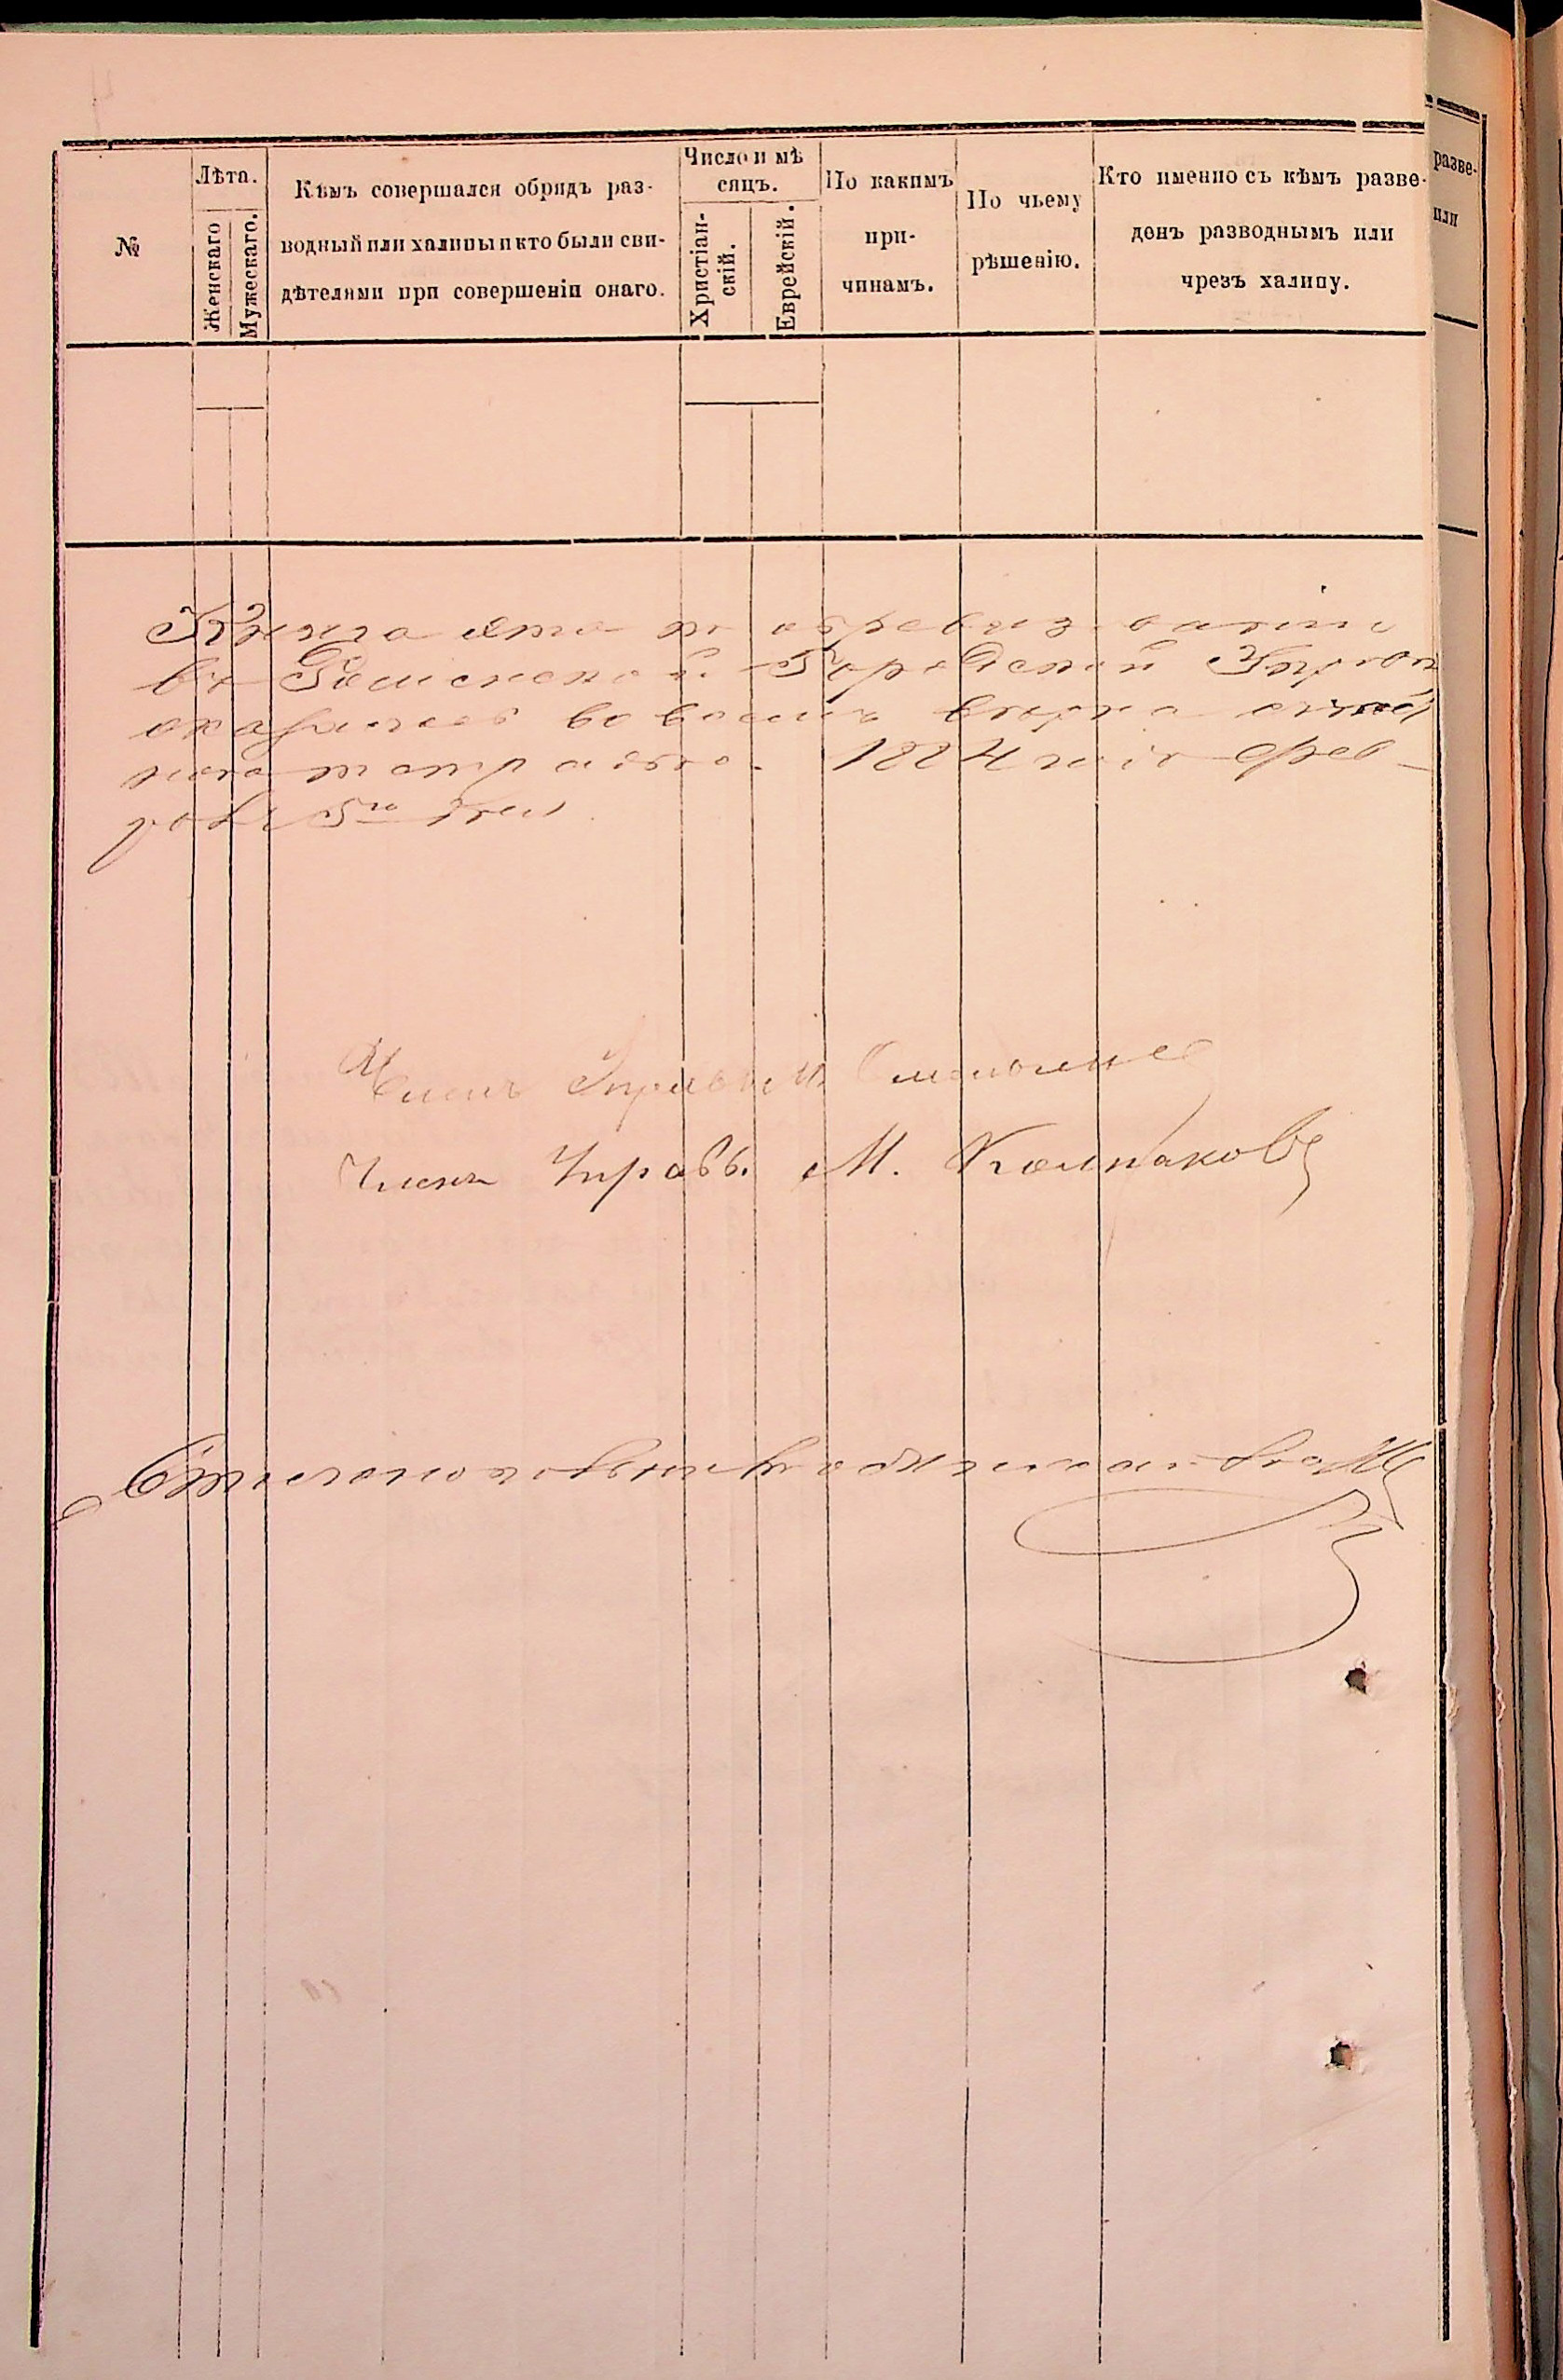 №
Лѣта.
Женскаго
Мужескаго.
Кѣмъ совершался обрядъ раз-
водный или халицы и кто были сви-
дѣтелями при совершеніи онаго.
Число и мѣ
сяцъ.
Христіан-
скій.
Еврейскій.
По какимъ
при-
чинамъ.
По чьему
рѣшенію.
Кто именно съ кѣмъ разве-
денъ разводнымъ или
чрезъ халицу.
разве-
или
Книга эта по обревизованіи
въ Роменской Городской Управ
оказалась во всемъ вѣрна
1884 года Фев-
раля 5го дня
Членъ Управы
Членъ Управы. М. Колпаковъ